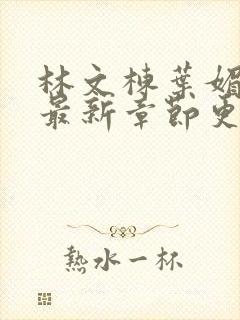 林文棟葉媚
最新章節更
熱水一杯